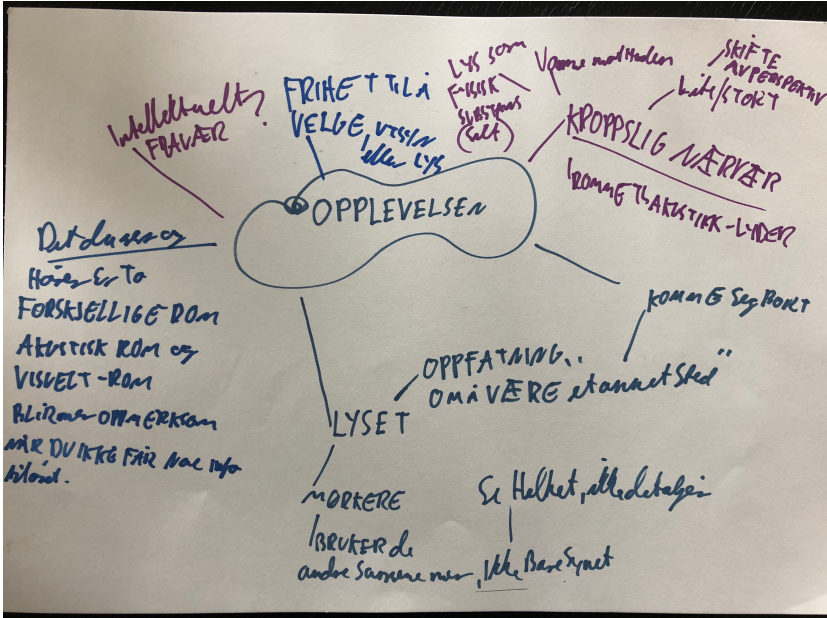 Intellektuelt?
FRAVÆR
FRIHET TIL Å
VELGE, VISJN
eller LYS
LYS SOM
FYSISK
SUBSTANS
(Salt)
Varme mot Huden
SKIFTE
AV PERSPEKTIV
Lite/STORT
KROPPSLIG NÆRVÆR
ROMMETS AKUSTIKK-LYDER
OPPLEVELSEN
Det du ser og
Hører Er To
FORSKJELLIGE ROM
AKUSTISK ROM og
VISUELT-ROM
BLIR mer OPPMERKSOM
NÅR DU IKKE FÅR NOK info
KOMME seg BORT
OPPFATNING..
OM Å VÆRE et annet Sted"
LYSET
MØRKERE
BRUKER de
andre Sansene mer, Ikke Bare Synet
Se Helhet, ikke detaljer